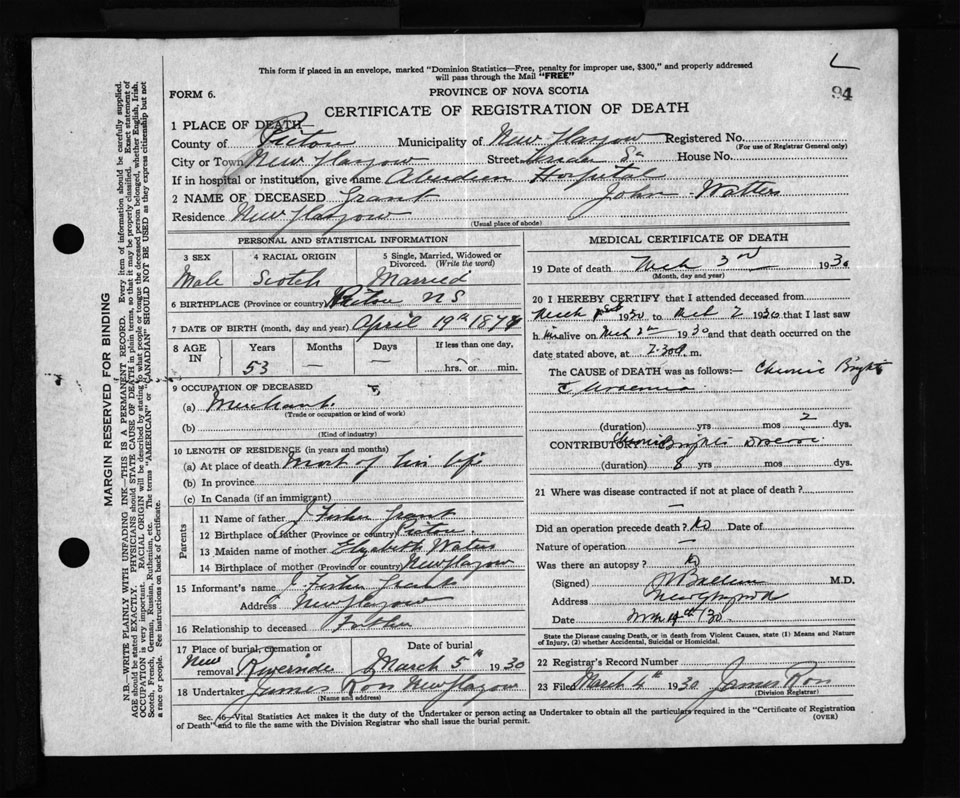 94
This form if placed in an envelope, marked "Dominion Statistics—Free, penalty for improper use, $300," and properly addressed
will pass through the Mail "FREE"
FORM 6.
PROVINCE OF NOVA SCOTIA
CERTIFICATE OF REGISTRATION OF DEATH
1 PLACE OF DEATH—
County of Pictou Municipality of New Glasgow Registered No.
(For use of Registrar General only)
City or Town New Glasgow Street House No.
If in hospital or institution, give name Aberdeen Hospital
2 NAME OF DECEASED Grant John Watters
Residence New Glasgow
(Usual place of abode)
PERSONAL AND STATISTICAL INFORMATION
3 SEX 4 RACIAL ORIGIN 5 Single, Married, Widowed or
Divorced. (Write the word)
Male Scotch Married
6 BIRTHPLACE (Province or country) Pictou NS
7 DATE OF BIRTH (month, day and year) April 19th 187
8 AGE IN Years Months Days If less than one day,
53 — — hrs. or min.
9 OCCUPATION OF DECEASED
(a) Merchant.
(Trade or occupation or kind of work)
(b)
(Kind of industry)
10 LENGTH OF RESIDENCE (in years and months)
(a) At place of death Most of his life
(b) In province
(c) In Canada (if an immigrant)
Parents
11 Name of father J Fisher Grant
12 Birthplace of father (Province or country) Pictou
13 Maiden name of mother Elizabeth Waters
14 Birthplace of mother (Province or country) New Glasgow
15 Informant's name J. Fisher Grant
Address New Glasgow
16 Relationship to deceased Father
17 Place of burial, cremation or removal Date of burial
New Riverside March 5th 1930
18 Undertaker James Ross New Glasgow
(Name and address)
MEDICAL CERTIFICATE OF DEATH
19 Date of death Mch 3rd 1930
(Month, day and year)
20 I HEREBY CERTIFY that I attended deceased from
Mch 1st 1930 to Mch 2 1930 that I last saw
h im alive on Mch 2nd 1930 and that death occurred on
date stated above, at 2.30 m.
The CAUSE of DEATH was as follows:— Chronic Brights
Uraemia
(duration) yrs mos 2 dys.
CONTRIBUTORY Chronic Brights Disease
(duration) 8 yrs mos dys.
21 Where was disease contracted if not at place of death?
—
Did an operation precede death? No Date of
Nature of operation —
Was there an autopsy? No
(Signed) M.D.
Address New Glasgow
Date 4th /30
State the Disease causing Death, or in death from Violent Causes, state (1) Means and Nature
of Injury, (2) whether Accidental, Suicidal or Homicidal.
22 Registrar's Record Number
23 Filed March 4th 1930 James Ross
(Division Registrar)
Sec. 46—Vital Statistics Act makes it the duty of the Undertaker or person acting as Undertaker to obtain all the particulars required in the "Certificate of Registration
of Death" and to file the same with the Division Registrar who shall issue the burial permit.
(OVER)
MARGIN RESERVED FOR BINDING
N.B.—WRITE PLAINLY WITH UNFADING INK—THIS IS A PERMANENT RECORD. Every item of information should be carefully supplied.
AGE should be stated EXACTLY. PHYSICIANS should STATE CAUSE OF DEATH in plain terms, so that it may be properly classified. Exact statement of
OCCUPATION is very important. RACIAL ORIGIN will be described by stating to what people or tongue the deceased person belonged, whether English, Irish,
Scotch, French, German, Russian, Ruthenian, etc. The terms "AMERICAN" or "CANADIAN" SHOULD NOT BE USED as they express citizenship but not
a race or people. See instructions on back of Certificate.